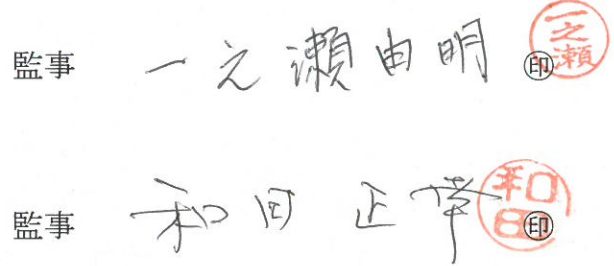 監事 一之瀬由明 ㊞ 一之瀬
監事 和田 正 ㊞ 和田